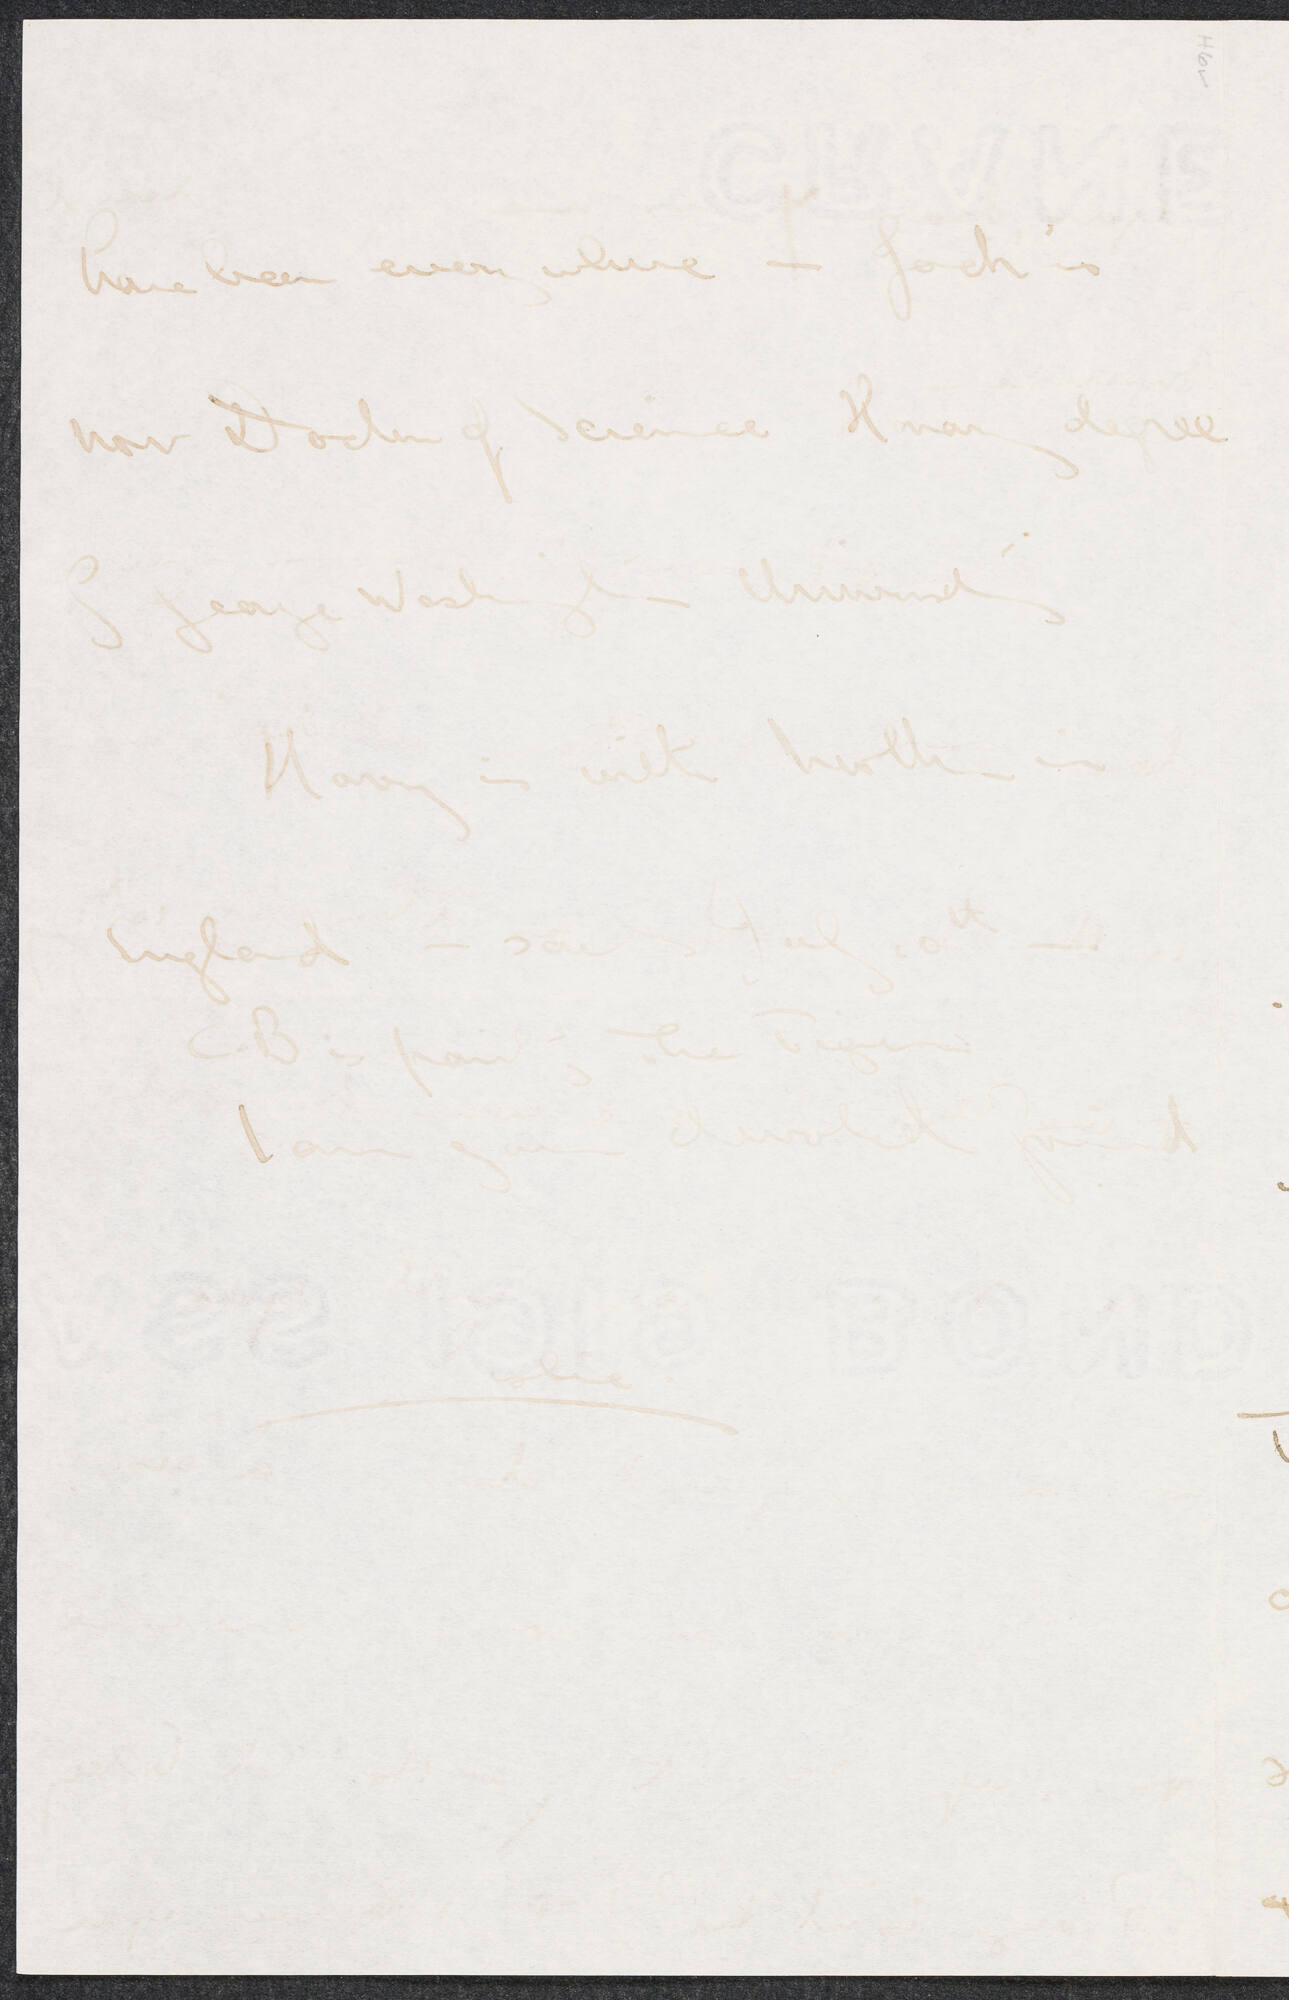 have been everywhere – Jack is
now Doctor of Science Honary degree
of George Washington University
Harry is with brother in
England – sails July 10th –
CB is paint'g the Tigers
I am your devoted friend